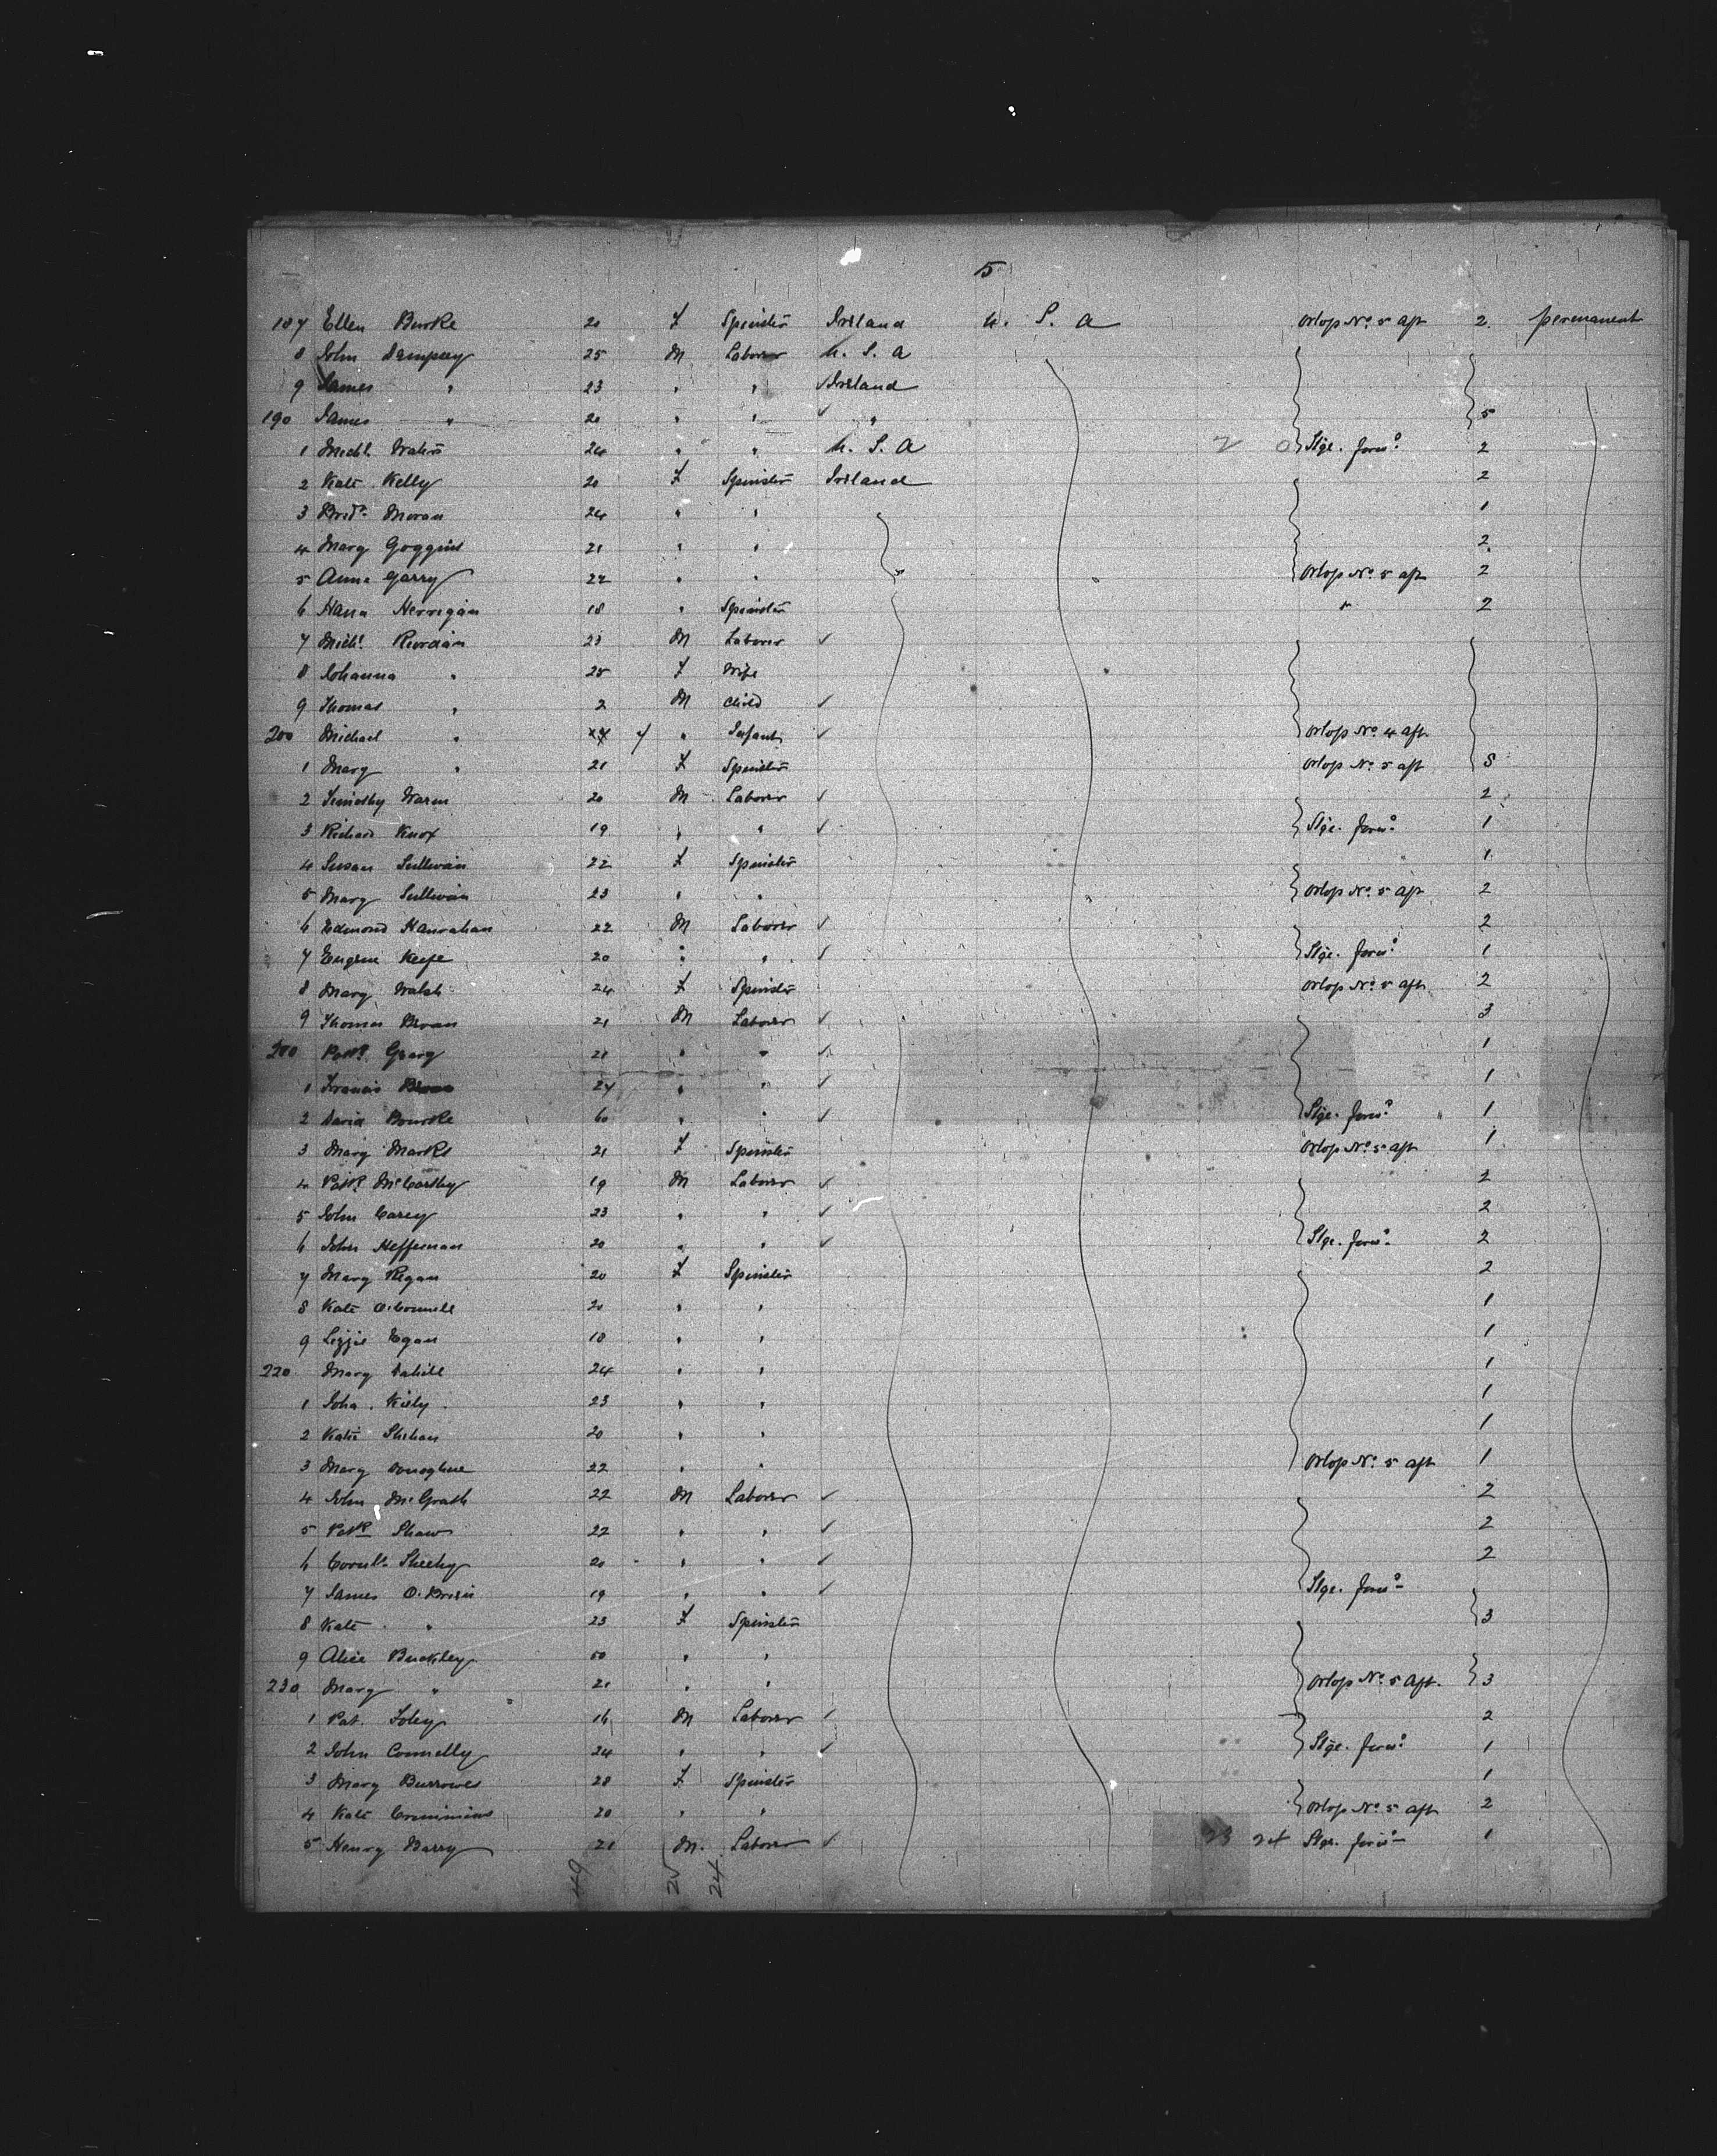 5
187 Ellen Burke 20 F Spinster Ireland U. S. A Orlop No. 5 aft 2 permanent
8 John Dempsey 25 M Laborer U. S. A
9 James " 23 " " ✓ Ireland
190 James " 20 " " ✓ " 5
1 Michl. Waters 24 " " U. S. A 2 0 Stge. forwd. 2
2 Kate Kelly 20 F Spinster Ireland 2
3 Bridt. Moran 24 " " 1
4 Mary Goggins 21 " " 2
5 Anne Garry 22 " " Orlop No. 5 aft 2
6 Hana Herrigan 18 " Spinster " 2
7 Michl. Riordan 23 M Laborer ✓
8 Johanna " 25 F Wife
9 Thomas " 2 M Child ✓
200 Michael " 7 " Infant ✓ Orlop No. 4 aft.
1 Mary " 21 F Spinster Orlop No. 5 aft 8
2 Timothy 20 M Laborer ✓ 2
3 Richard Knox 19 " " ✓ Stge. forwd. 1
4 Susan Sullivan 22 F Spinster 1
5 Mary Sullivan 23 " " Orlop No. 5 aft 2
6 Edmond Hanrahan 22 M Laborer ✓ 2
7 Eugene Keefe 20 " " ✓ Stge. forwd. 1
8 Mary Walsh 24 F Spinster Orlop No. 5 aft 2
9 Thomas 21 M Laborer ✓ 3
210 Patk. 21 " " ✓ 1
1 Francis 24 " " ✓ 1
2 David Bourke 60 " " ✓ Stge. forwd. 1
3 Mary Marks 21 F Spinster Orlop No. 5 aft 1
4 Patk. McCarthy 19 M Laborer ✓ 2
5 John Carey 23 " " ✓ 2
6 John Heffernan 20 " " ✓ Stge. forwd. 2
7 Mary Regan 20 F Spinster 2
8 Kate O'Connell 20 " " 1
9 Lizzie Egan 18 " " 1
220 Mary Cahill 24 " " 1
1 Joha. Kiely 23 " " 1
2 Kate Shehan 20 " " 1
3 Mary Donoghue 22 " " Orlop No. 5 aft 1
4 John McGrath 22 M Laborer ✓ 2
5 Patk Shaw 22 " " ✓ 2
6 Cornls. Sheehy 20 " " ✓ 2
7 James O'Brien 19 " " ✓ Stge. forwd.
8 Kate " 23 F Spinster 3
9 Alice Buckley 50 " "
230 Mary " 21 " " Orlop No. 5 Aft. 3
1 Pat. Foley 16 M Laborer ✓ 2
2 John Connelly 24 " " ✓ Stge. forwd. 1
3 Mary Burrowes 28 F Spinster 1
4 Kate Crimmins 20 " " Orlop No. 5 aft 2
5 Henry Barry 21 M. Laborer ✓ 23 24 Stge. forwd. 1
49 25 24